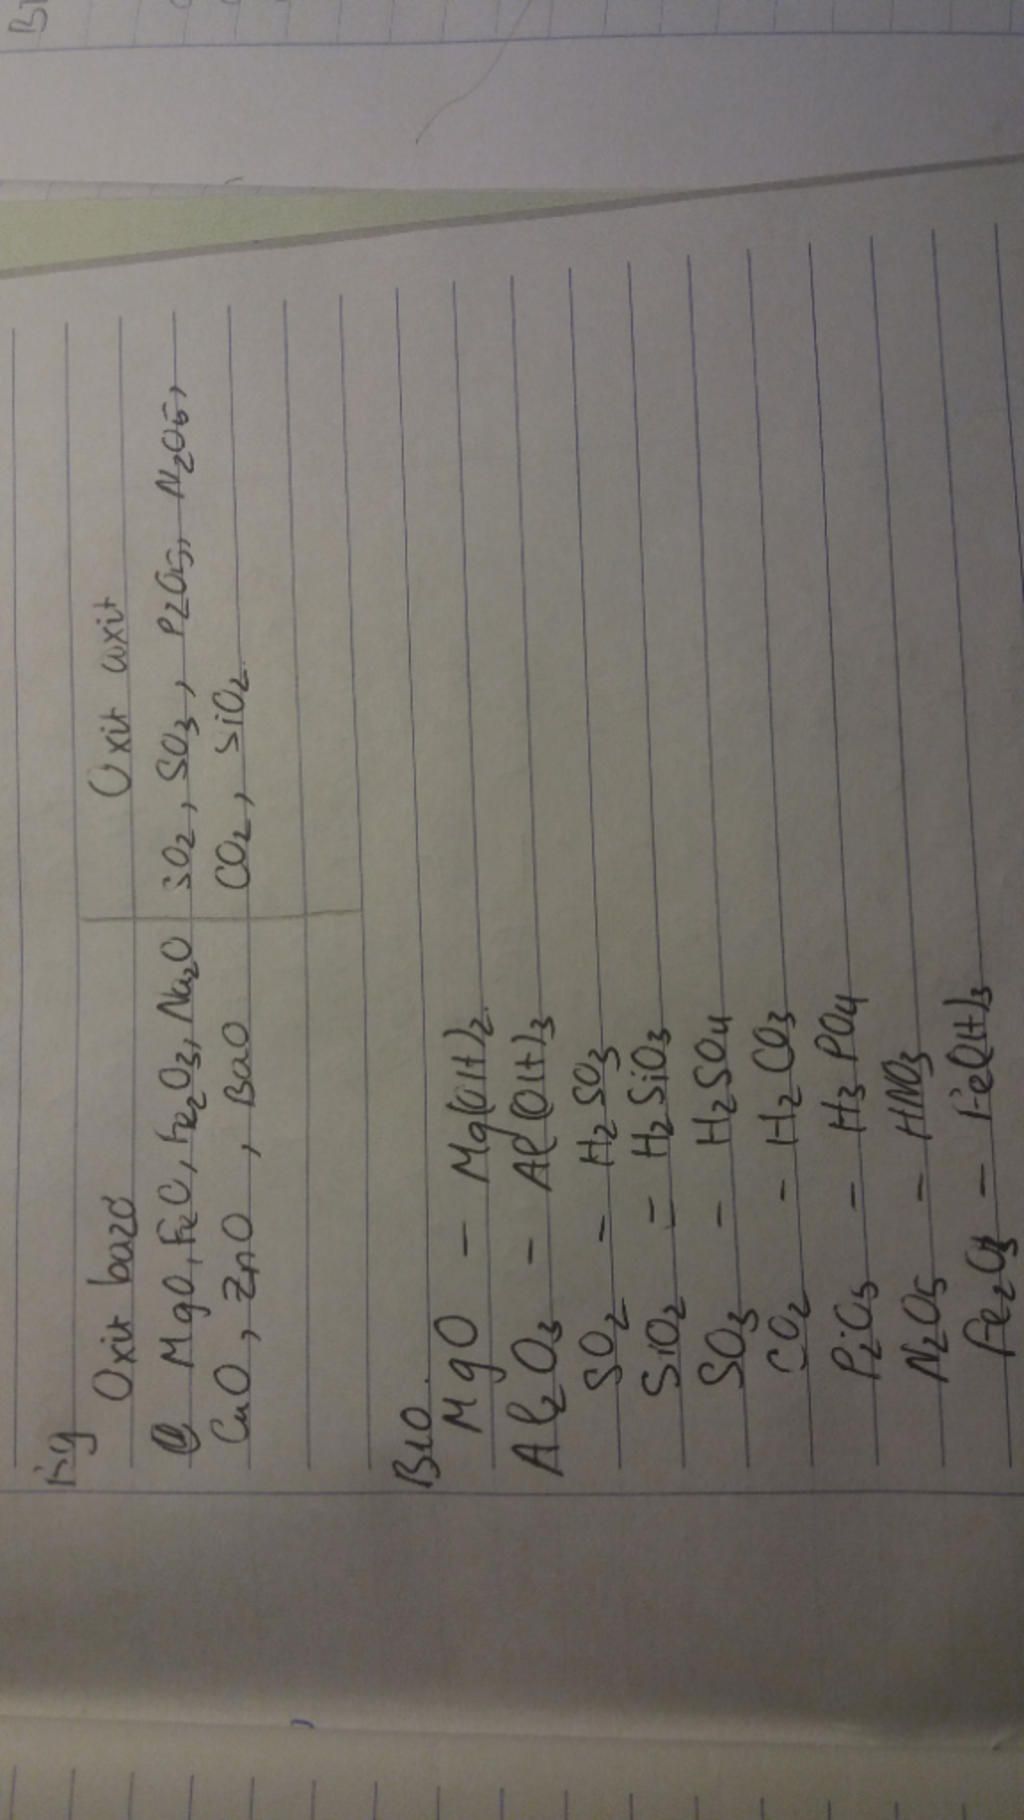 B9
Oxit bazơ Oxit axit
MgO, FeO, Fe2O3, Na2O SO2, SO3, P2O5, N2O5,
CuO, ZnO, BaO CO2, SiO2
B10.
MgO - Mg(OH)2
Al2O3 - Al(OH)3
SO2 - H2SO3
SiO2 = H2SiO3
SO3 - H2SO4
CO2 - H2CO3
P2O5 - H3PO4
N2O5 - HNO3
Fe2O3 - Fe(OH)3